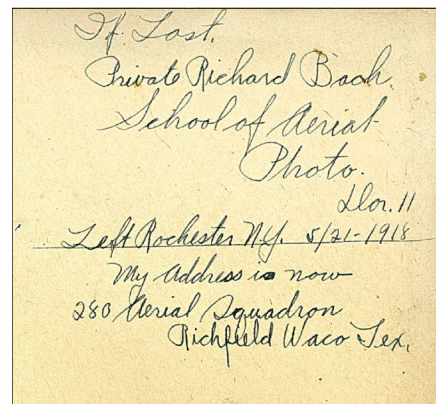 If Lost.
Private Richard Bach
School of Aerial
Photo.
Dor. 11
Left Rochester N.Y. 5/21-1918
My Address is now
280 Aerial Squadron
Richfield Waco Tex.